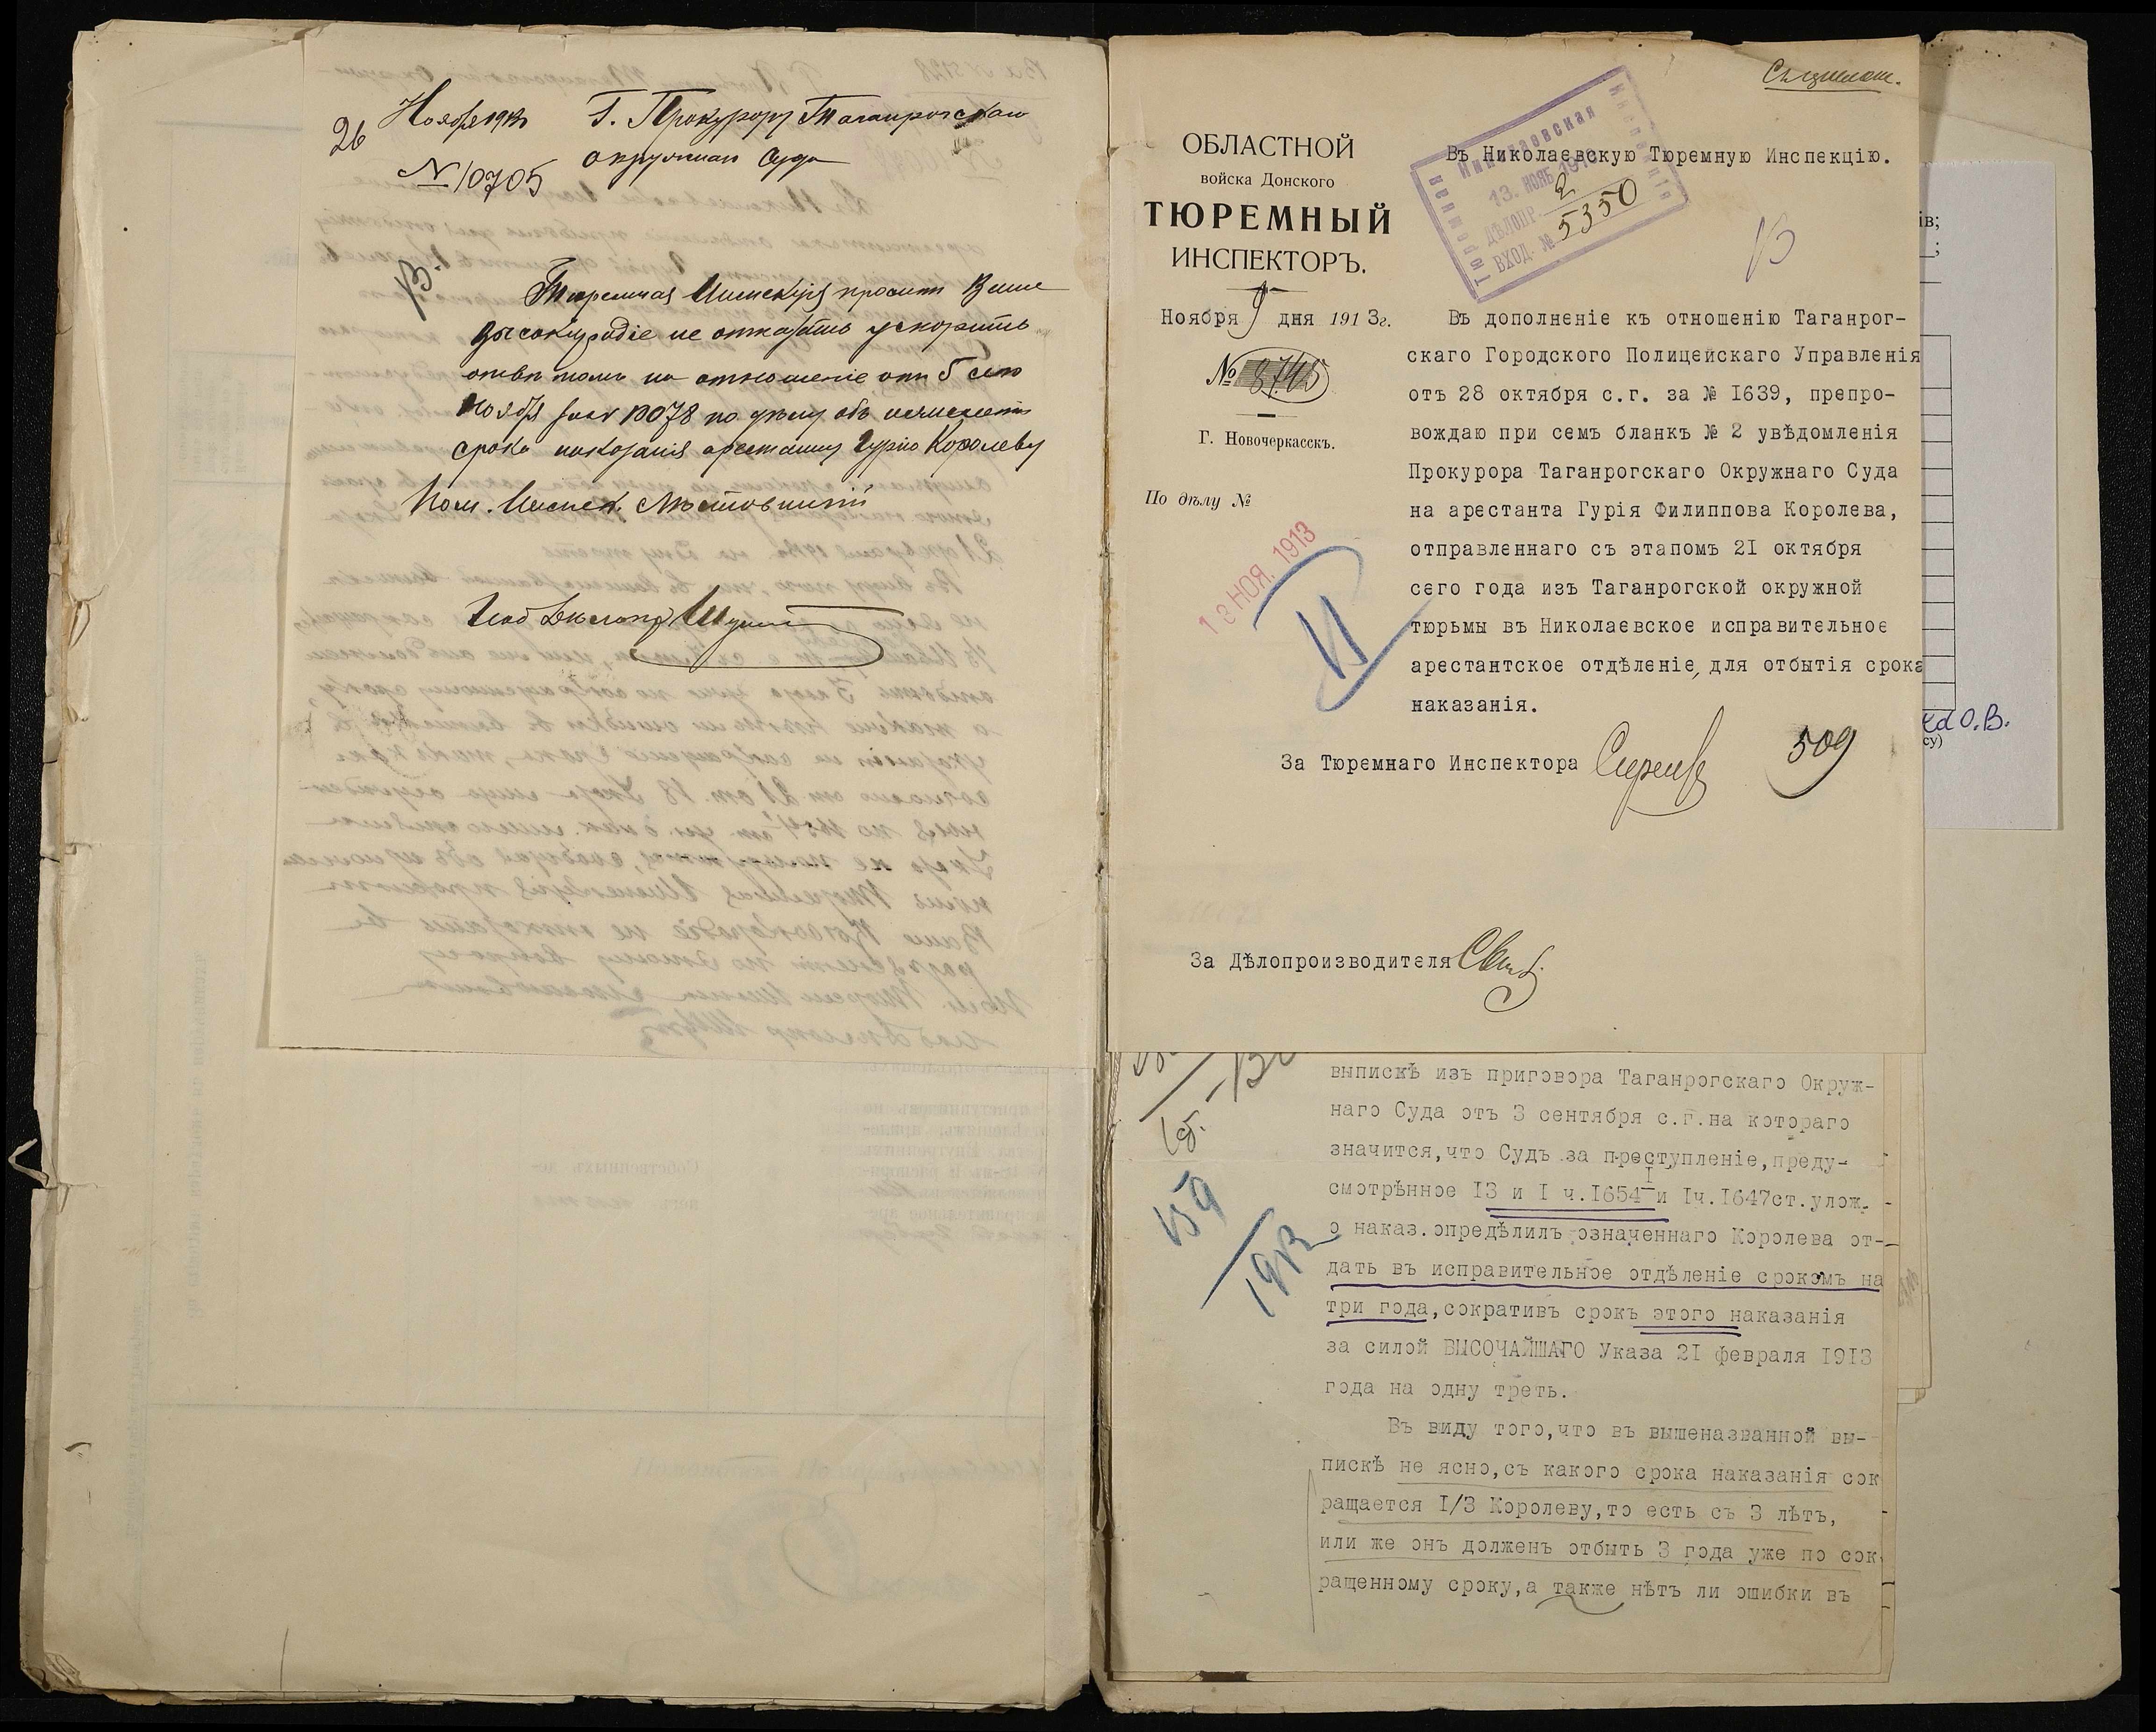 26 Ноября 1913
№ 10705
Г. Прокурору Таганрогскаго
окружнаго Суда
Тюремная Инспекція проситъ Ваше
Высокородіе не отказать ускорить
отвѣтомъ на отношеніе отъ 5 сего
Ноября за № 10078 по дѣлу объ исчисленіи
срока наказанія арестанту Гурію Королеву
Пом. Инспек.
ОБЛАСТНОЙ
войска Донского
ТЮРЕМНЫЙ
ИНСПЕКТОРЪ.
Ноября 9 дня 1913г.
№ 8745
Г. Новочеркасскъ.
По дѣлу №
13 НОЯ. 1913
Николаевская
Тюремная
Инспекція
13. НОЯБ 1913
ДѢЛОПР. 2
ВХОД. № 5350
Въ Николаевскую Тюремную Инспекцію.
Въ дополненіе къ отношенію Таганрог-
скаго Городского Полицейскаго Управленія
отъ 28 октября с.г. за № 1639, препро-
вождаю при семъ бланкъ № 2 увѣдомленія
Прокурора Таганрогскаго Окружнаго Суда
на арестанта Гурія Филиппова Королева,
отправленнаго съ этапомъ 21 октября
сего года изъ Таганрогской окружной
тюрьмы въ Николаевское исправительное
арестантское отдѣленіе, для отбытія срока
наказанія.
За Тюремнаго Инспектора
509
За Дѣлопроизводителя
выпискѣ изъ приговора Таганрогскаго Окруж-
наго Суда отъ 3 сентября с.г. на котораго
значится, что Судъ за преступленіе, преду-
смотрѣнное 13 и 1 ч. 1654¹ и 1ч. 1647ст. улож.
о наказ. опредѣлилъ означеннаго Королева от-
дать въ исправительное отдѣленіе срокомъ на
три года, сокративъ срокъ этого наказанія
за силой ВЫСОЧАЙШАГО Указа 21 февраля 1913
года на одну треть.
Въ виду того, что въ вышеназванной вы-
пискѣ не ясно, съ какого срока наказанія сок
ращается 1/3 Королеву, то есть съ 3 лѣтъ,
или же онъ долженъ отбыть 3 года уже по сок
ращенному сроку, а также нѣтъ ли ошибки въ
159
1913
ів;
ка О.В.
су)